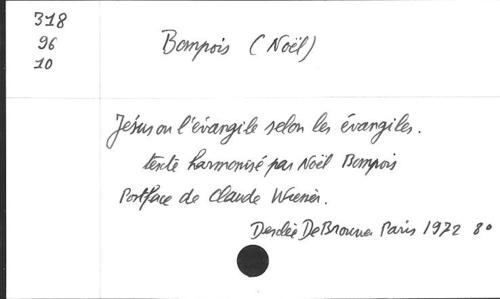 318
96
10
Bompois (Noël)
Jésus ou l'évangile selon les évangiles.
texte harmonisé par Noël Bompois
Postface de Claude Wiener.
Desclée De Brouwer Paris 1972 8º